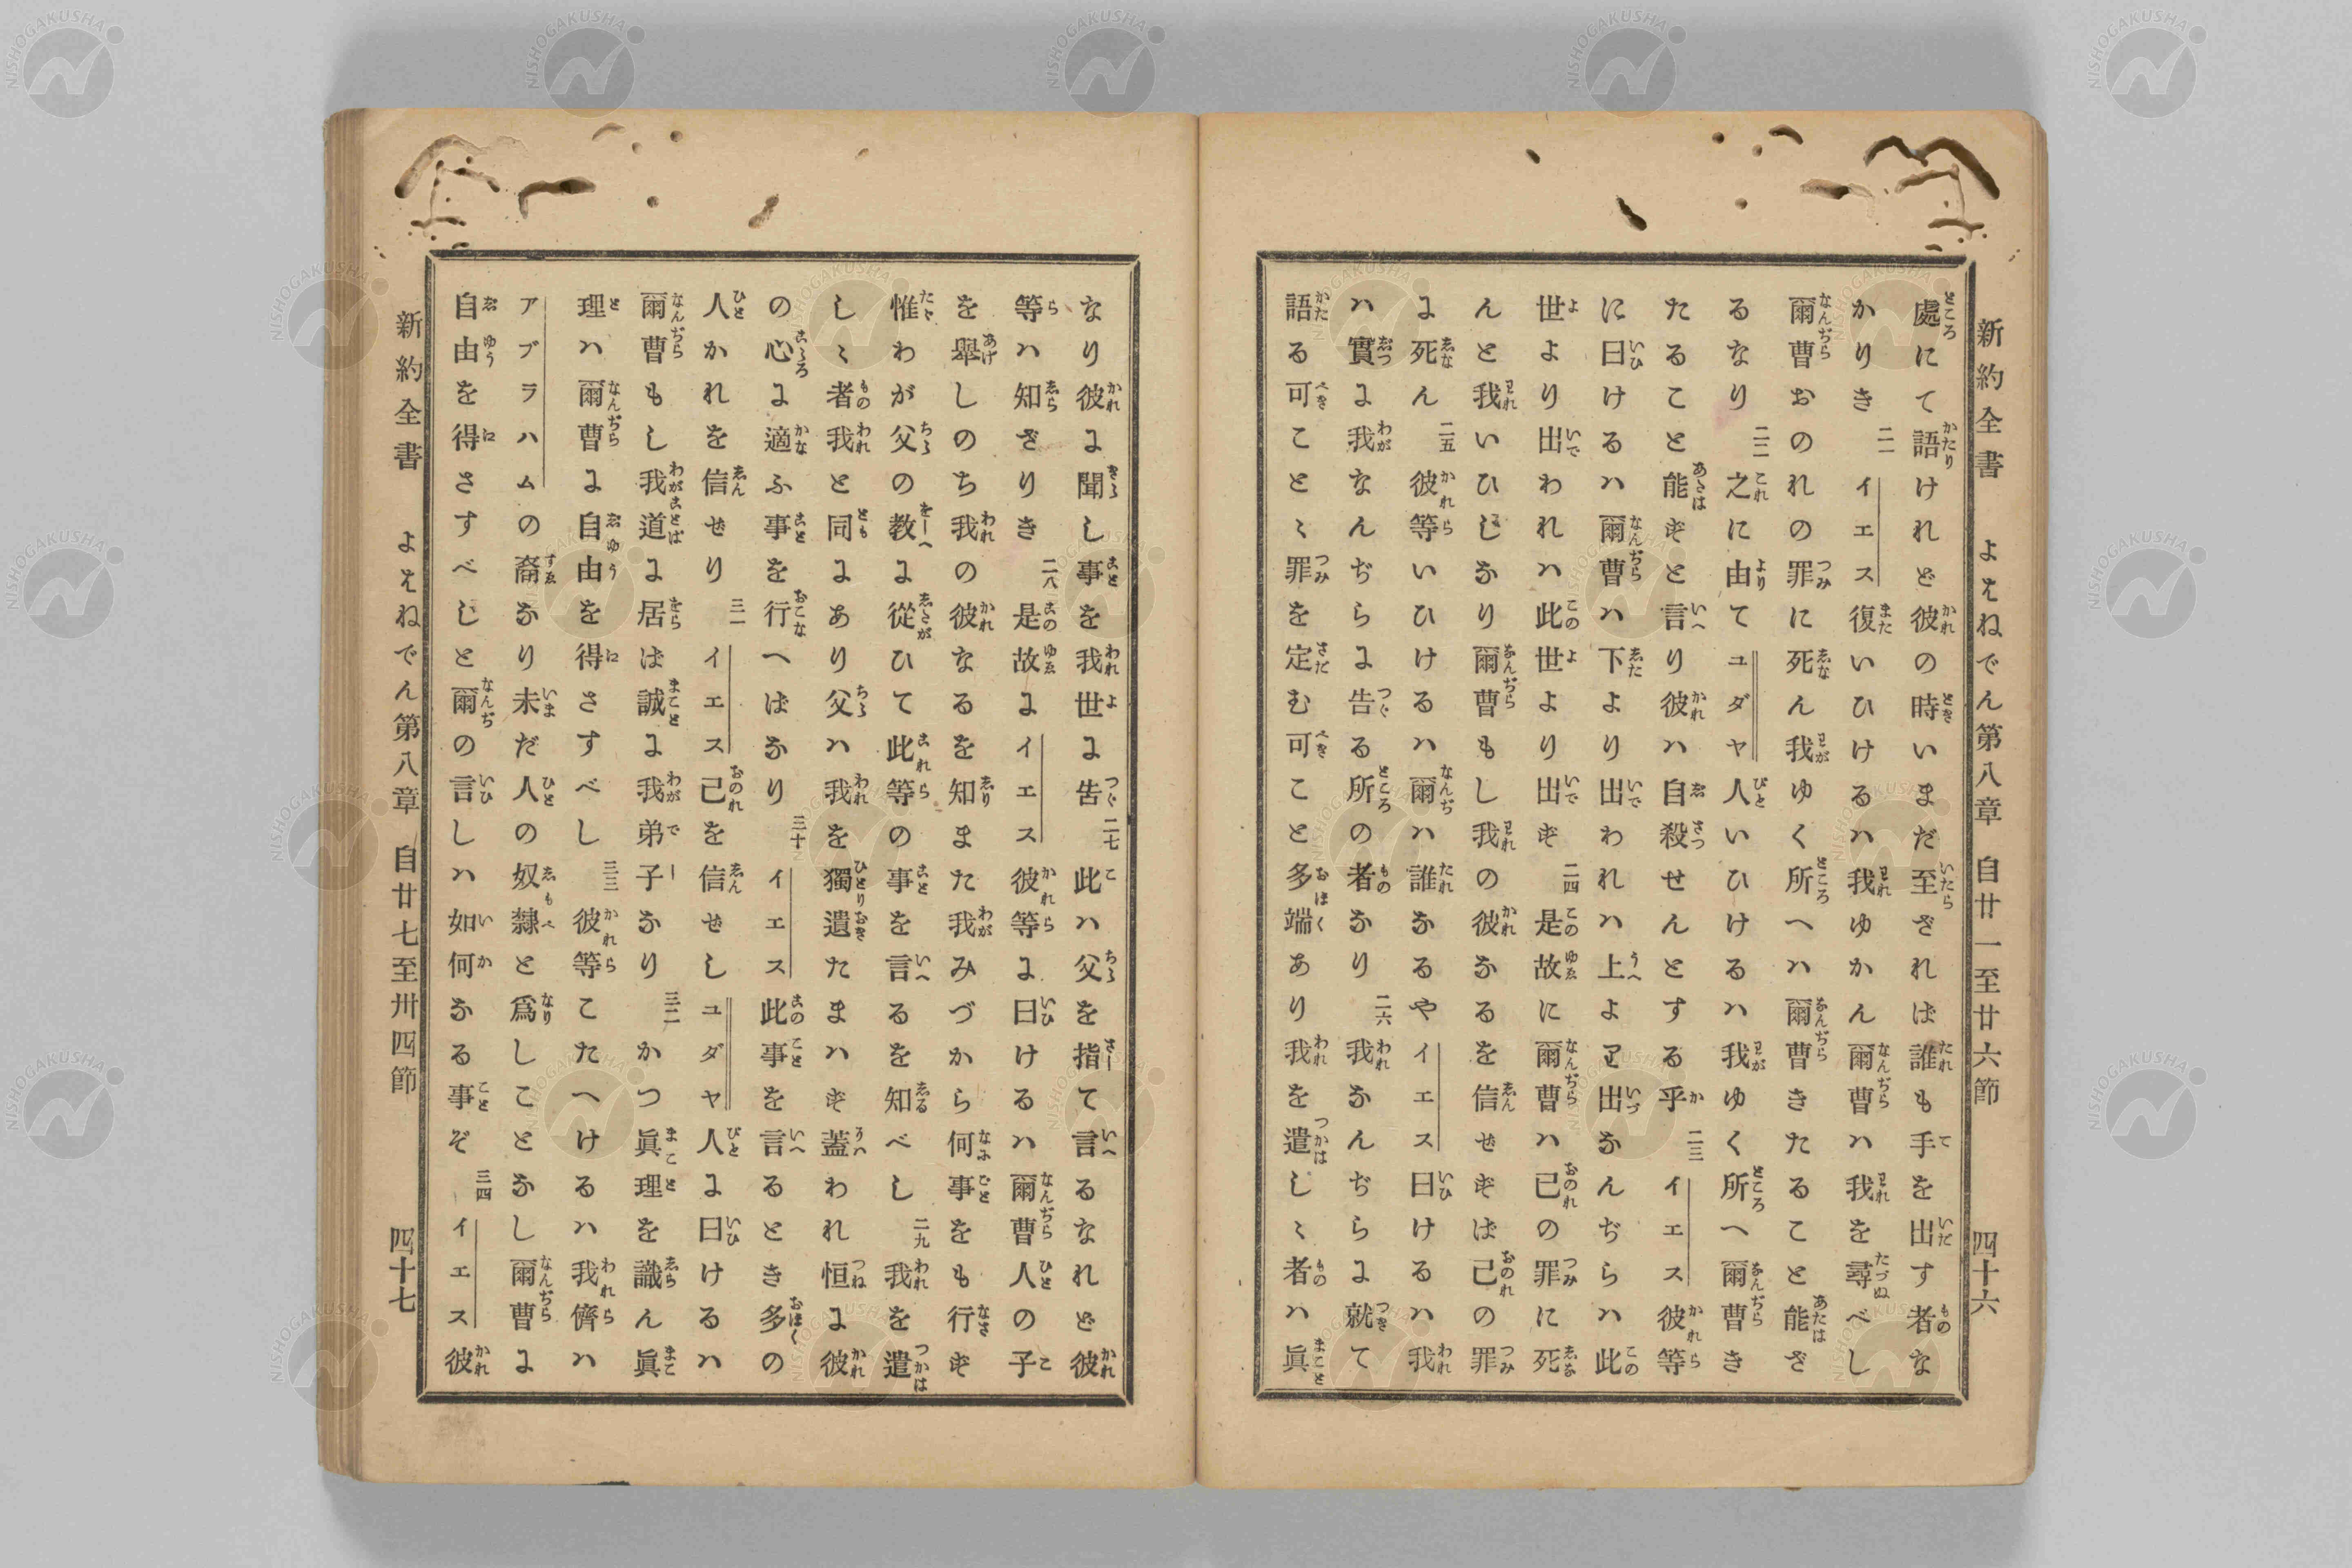 新約全書　よはねでん第八章　自廿一至廿六節　四十六
處にて語けれど彼の時いまだ至ざれば誰も手を出す者な
かりき 二一 イエス復いひけるハ我ゆかん爾曹ハ我を尋べし
爾曹おのれの罪に死ん我ゆく所へハ爾曹きたること能ざ
るなり 二二 之に由てユダヤ人いひけるハ我ゆく所へ爾曹き
たること能ずと言り彼ハ自殺せんとする乎 二三 イエス彼等
に曰けるハ爾曹ハ下より出われハ上より出なんぢらハ此
世より出われハ此世より出ず 二四 是故に爾曹ハ己の罪に死
んと我いひしなり爾曹もし我の彼なるを信せずば己の罪
に死ん 二五 彼等いひけるハ爾ハ誰なるやイエス曰けるハ我
ハ實に我なんぢらに告る所の者なり 二六 我なんぢらに就て
語る可こと〻罪を定む可こと多端あり我を遣し〻者ハ眞
なり彼に聞し事を我世に告 二七 此ハ父を指て言るなれど彼
等ハ知ざりき 二八 是故にイエス彼等に曰けるハ爾曹人の子
を舉しのち我の彼なるを知また我みづから何事をも行ず
惟わが父の教に從ひて此等の事を言るを知べし 二九 我を遣
し〻者我と同にあり父ハ我を獨遺たまハず蓋われ恒に彼
の心に適ふ事を行へばなり 三十 イエス此事を言るとき多の
人かれを信せり 三一 イエス己を信せしユダヤ人に曰けるハ
爾曹もし我道に居ば誠に我弟子なり 三二 かつ眞理を識ん眞
理ハ爾曹に自由を得さすべし 三三 彼等こたへけるハ我儕ハ
アブラハムの裔なり未だ人の奴隸と爲しことなし爾曹に
自由を得さすべしと爾の言しハ如何なる事ぞ 三四 イエス彼
新約全書　よはねでん第八章　自廿七至卅四節　四十七